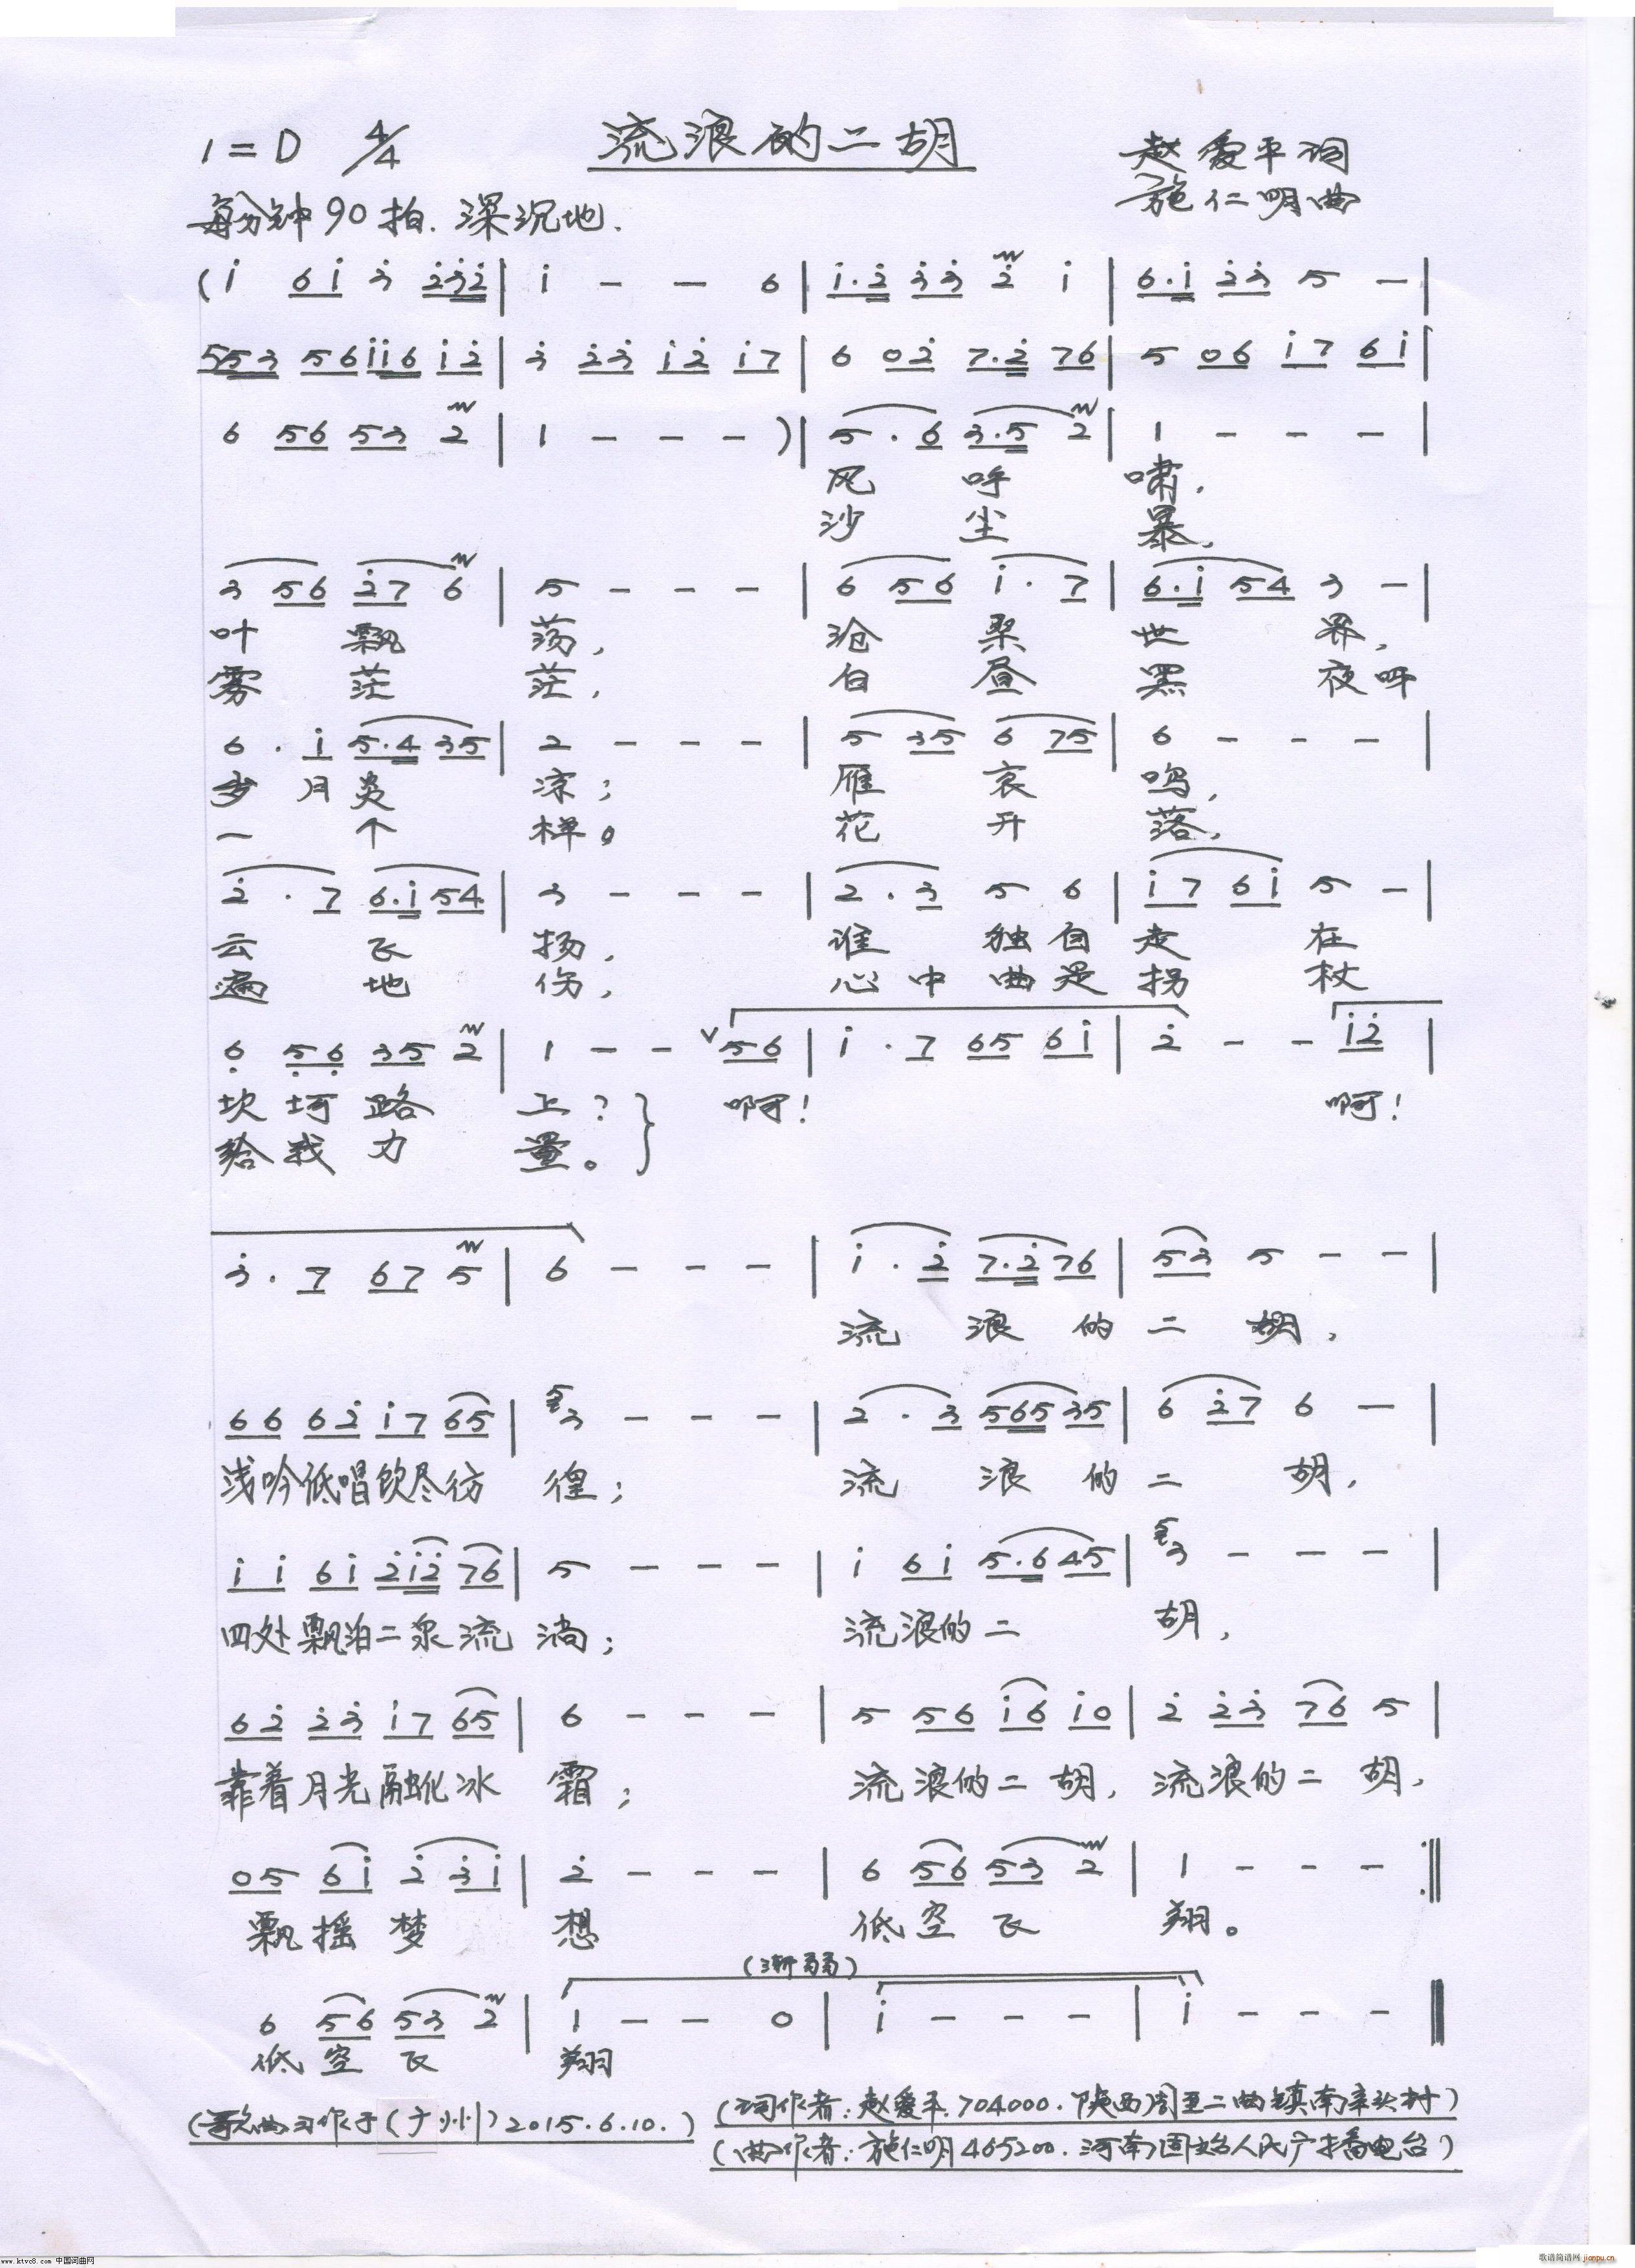 1=D 4/4 流浪的二胡 赵爱平词
每分钟90拍. 深沉地. 施仁明曲
(i 6i 3 232 | i - - 6 | i.2 33 2 i | 6.i 23 5 - |
553 56ii6 i2 | 3 23 i2 i7 | 6 02 7.2 76 | 5 06 i7 6i |
6 56 53 2 | 1 - - - ) | 5.6 3.5 2 | 1 - - - |
风 呼 啸,
沙 尘 暴,
3 56 27 6 | 5 - - - | 6 56 i.7 | 6.i 54 3 - |
叶 飘 荡, 沧 桑 世 界,
雾 茫 茫, 白 昼 黑 夜呼
6.i 5.4 35 | 2 - - - | 5 35 6 75 | 6 - - - |
岁 月 炎 凉; 雁 哀 鸣,
一 个 样。 花 开 落,
2.7 6.i 54 | 3 - - - | 2.3 5 6 | i7 6i 5 - |
云 飞 扬, 谁 独自 走 在
遍 地 伤, 心 中 曲是 拐 杖
6 56 35 2 | 1 - - ∨56 | i.7 65 6i | 2 - - i2 |
坎 坷 路 上? 啊! 啊!
给 我 力 量。
3.7 67 5 | 6 - - - | i.2 7.2 76 | 53 5 - - |
流 浪 的 二 胡,
66 62 i7 65 | 5 3 - - - | 2.3 565 35 | 6 27 6 - |
浅吟低唱饮尽彷 徨; 流 浪 的 二 胡,
i i 6i 2i2 76 | 5 - - - | i 6i 5.6 45 | 5 3 - - - |
四处飘泊二泉流 淌; 流浪的二 胡,
62 23 i7 65 | 6 - - - | 5 56 i6 i0 | 2 23 76 5 |
靠着月光融化冰 霜; 流浪的二胡, 流浪的二胡,
05 6i 2 3i | 2 - - - | 6 56 53 2 | 1 - - - :‖
飘摇梦 想 低空飞 翔。
(渐弱)
6 56 53 2 | 1 - - 0 | i - - - | i - - - ‖
低 空 飞 翔
(歌曲习作于(广州)2015.6.10.) (词作者:赵爱平.704000.陕西周至二曲镇南辛头村)
(曲作者:施仁明465200.河南固始人民广播电台)
www.ktvc8.com 中国词曲网
歌谱简谱网 jianpu.cn